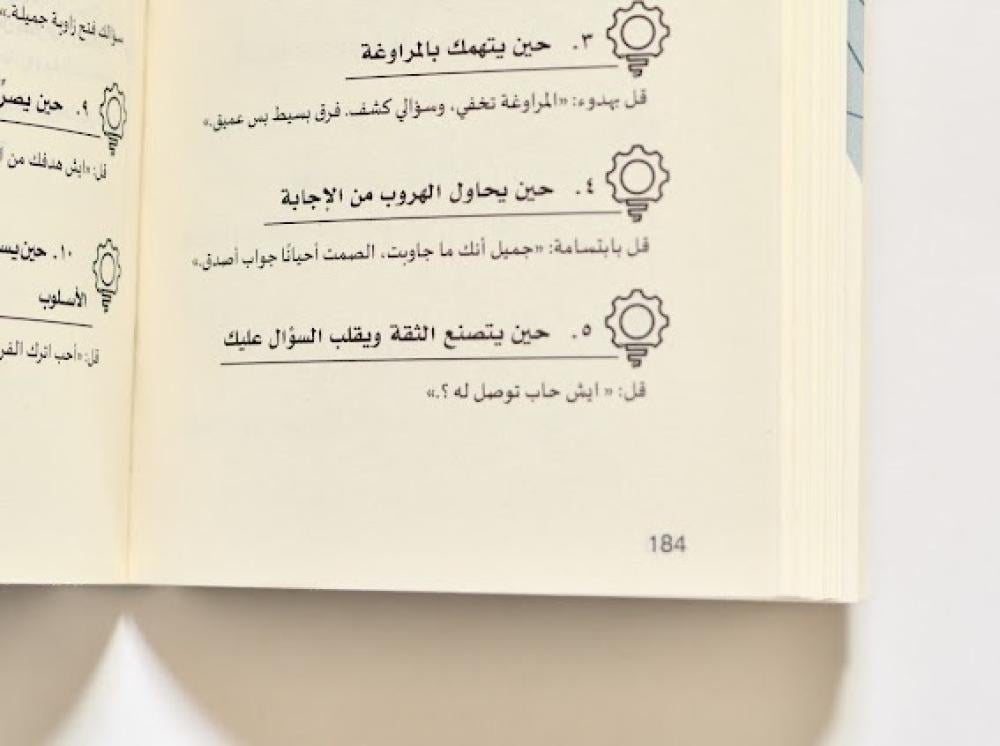 ٣. حين يتهمك بالمراوغة
قل بهدوء: «المراوغة تخفي، وسؤالي كشف. فرق بسيط بس عميق.»
٤. حين يحاول الهروب من الإجابة
قل بابتسامة: «جميل أنك ما جاوبت، الصمت أحيانًا جواب أصدق.»
٥. حين يتصنع الثقة ويقلب السؤال عليك
قل: « ايش حاب توصل له ؟.»
184
سؤالك فتح زاوية جميلة.»
٩. حين يصر
قل: «ايش هدفك من
١٠. حين
الأسلوب
قل: «أحب اترك